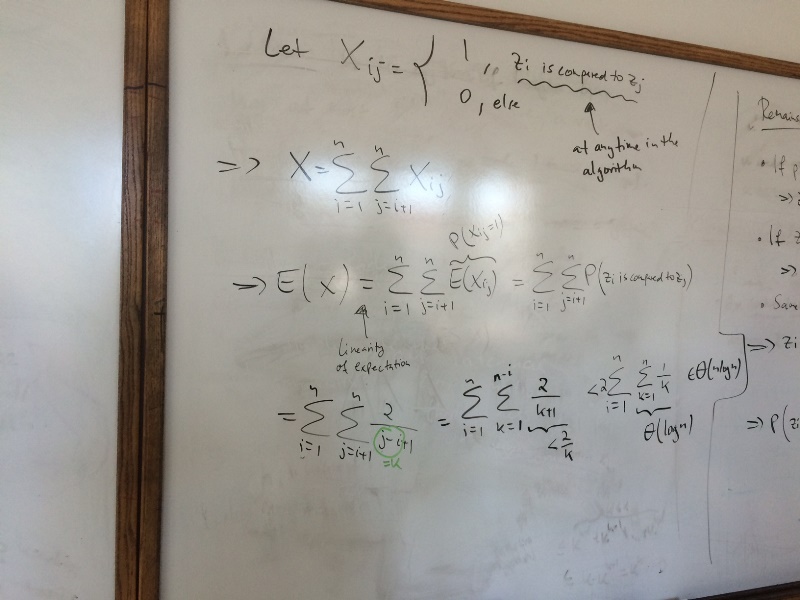 Let X_ij = { 1, z_i is compared to z_j
0, else
at any time in the
algorithm
=> X = Σ_{i=1}^{n} Σ_{j=i+1}^{n} X_ij
P(X_ij=1)
=> E(X) = Σ_{i=1}^{n} Σ_{j=i+1}^{n} E(X_ij) = Σ_{i=1}^{n} Σ_{j=i+1}^{n} P(z_i is compared to z_j)
linearity
of expectation
= Σ_{i=1}^{n} Σ_{j=i+1}^{n} 2/(j-i+1) = Σ_{i=1}^{n} Σ_{k=1}^{n-i} 2/(k+1) < 2 Σ_{i=1}^{n} Σ_{k=1}^{n} 1/k ∈ Θ(n log n)
=k
< 2/k
Θ(log n)
• If
• If
• Same
=> z_i
=> P(z_i